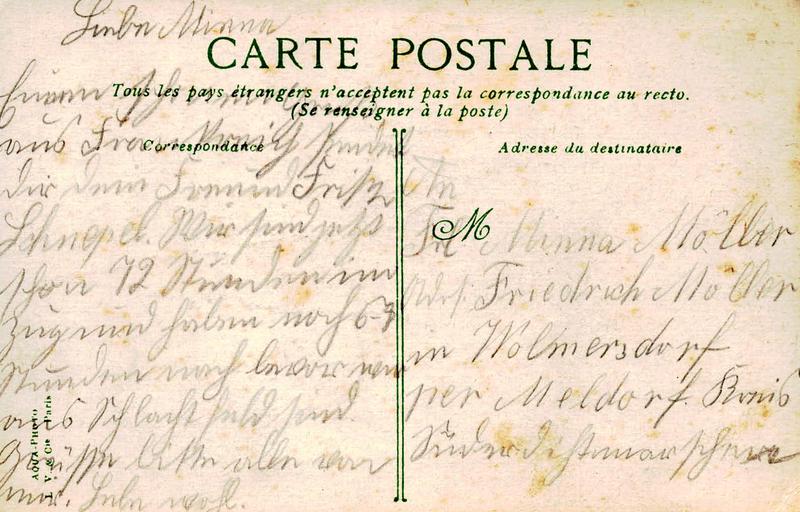 Liebe Minna
CARTE POSTALE
Tous les pays étrangers n'acceptent pas la correspondance au recto.
(Se renseigner à la poste)
Correspondance
Adresse du destinataire
aus Frankreich sendet
dir dein Freund Fritz
Schnepel. Wir sind jetzt
schon 72 Stunden im
Zug und haben noch 6-7
Stunden nach bevor wir
aufs Schlachtfeld sind.
Grüsse bitte alle von
mir. Lebe wohl.
An
M
Frl Minna Möller
Adr. Friedrich Möller
in Wolmersdorf
per Meldorf. Kreis
Süderdithmarschen
AQUA-PHOTO
L. V. & Cie Paris